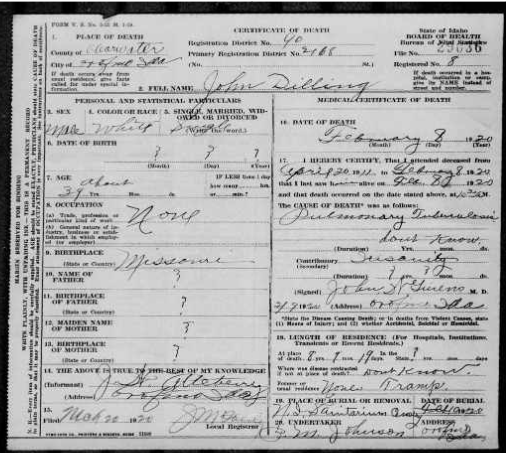 FORM V. S. No. 5-25 M. 1-19.
CERTIFICATE OF DEATH
State of Idaho
1. PLACE OF DEATH
BOARD OF HEALTH
Registration District No. 40
Bureau of Vital Statistics
County of Clearwater
Primary Registration District No. 2168
File No.
City of Orofino Ida
(No. St.
Registered No. 8
If death occurs away from usual residence, give facts called for under special information.
If death occurred in a hospital, institution or camp, give its NAME instead of street and number.
2. FULL NAME John Dilling
PERSONAL AND STATISTICAL PARTICULARS
MEDICAL CERTIFICATE OF DEATH
3. SEX
4. COLOR OR RACE
5. SINGLE, MARRIED, WIDOWED OR DIVORCED
Male White Single
(Write the word.)
16. DATE OF DEATH
February 8 1920
(Month) (Day) (Year)
6. DATE OF BIRTH
? ? ?
(Month) (Day) (Year)
17. I HEREBY CERTIFY, That I attended deceased from
April 20 1911 to February 8 1920
that I last saw him alive on Feb. 8 1920
and that death occurred on the date stated above, at
7. AGE About
39 Yrs. Mos. ds.
IF LESS than 1 day
how many hrs.
The CAUSE OF DEATH* was as follows:
Pulmonary Tuberculosis
8. OCCUPATION
(a) Trade, profession or particular kind of work
None
(b) General nature of industry, business or establishment in which employed (or employer)
dont know
(Duration) Yrs. mos. ds.
Contributory Insanity
(Secondary)
9. BIRTHPLACE
(State or Country) Missouri
10. NAME OF FATHER ?
11. BIRTHPLACE OF FATHER
(State or Country) ?
12. MAIDEN NAME OF MOTHER ?
13. BIRTHPLACE OF MOTHER
(State or Country) ?
(Duration) ? yrs. ? mos. ds.
(Signed) John W. Givens
(Address) Orofino Ida
*State the Disease Causing Death; or in deaths from Violent Causes, state (1) Means of Injury; and (2) whether Accidental, Suicidal or Homicidal.
18. LENGTH OF RESIDENCE (For Hospitals, Institutions, Transients or Recent Residents.)
At place of death 8 yrs. 9 mos. 19 ds. In the State ?
Where was disease contracted if not at place of death? Dont Know.
Former or usual residence None Tramp.
14. THE ABOVE IS TRUE TO THE BEST OF MY KNOWLEDGE
(Informant)
(Address) Orofino Ida
15.
Filed Mch 20 1920
Local Registrar
19. PLACE OF BURIAL OR REMOVAL
DATE OF BURIAL
N. I. Sanitarium
20. UNDERTAKER
ADDRESS
Johnson Orofino Idaho
MARGIN RESERVED FOR BINDING
WRITE PLAINLY, WITH UNFADING INK—THIS IS A PERMANENT RECORD